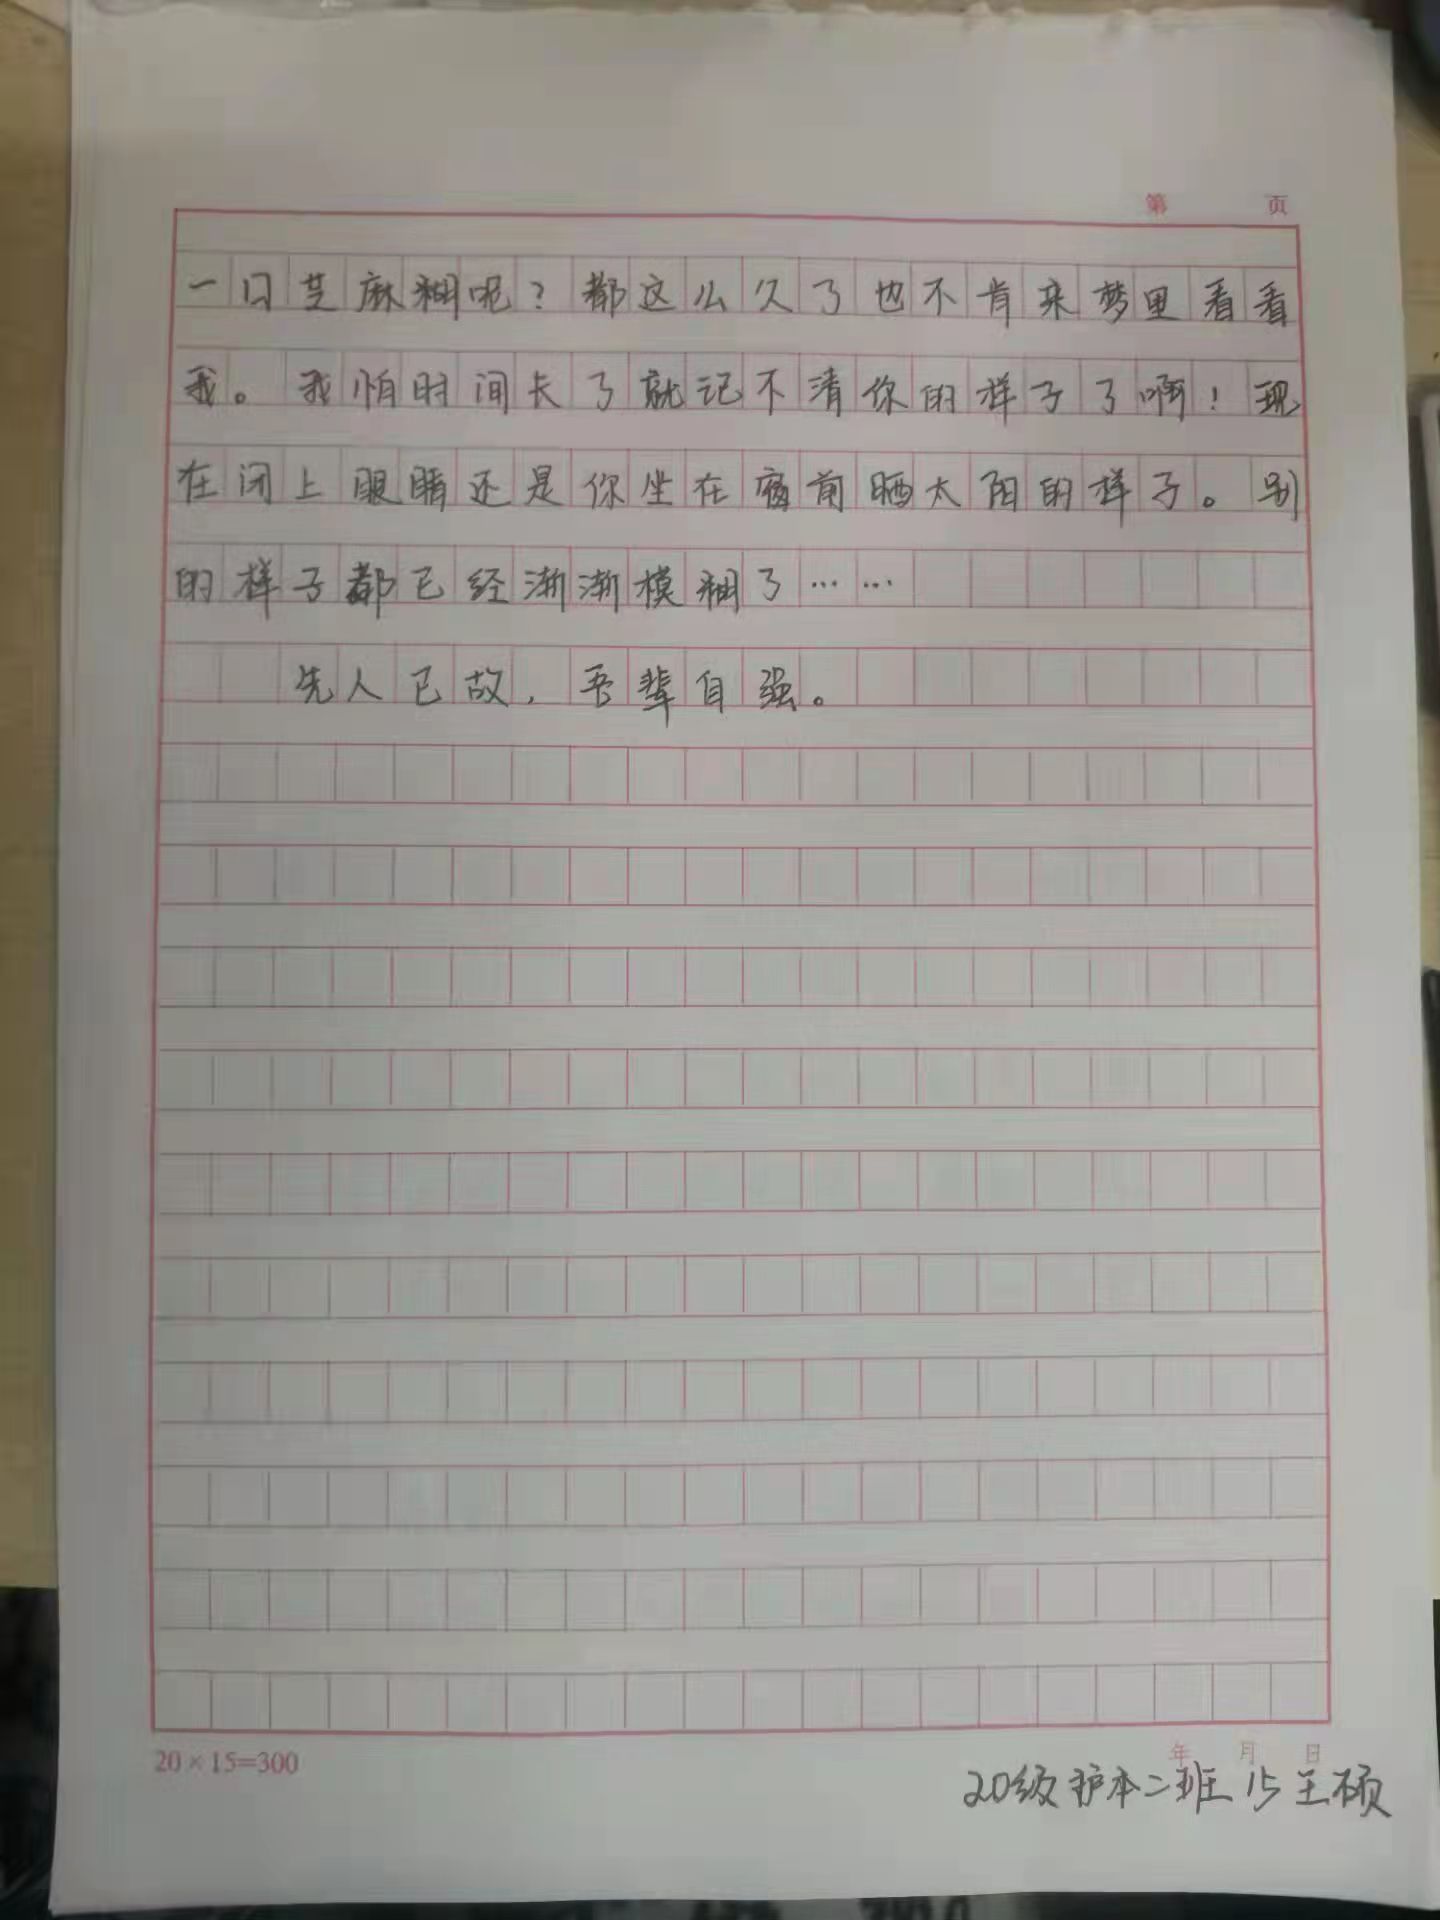 第 页
一口芝麻糊呢？都这么久了也不肯来梦里看看
我。我怕时间长了就记不清你的样子了啊！现
在闭上眼睛还是你坐在窗前晒太阳的样子。别
的样子都已经渐渐模糊了……
先人已故，吾辈自强。
20×15=300
年 月 日
20级护本二班 15 王硕